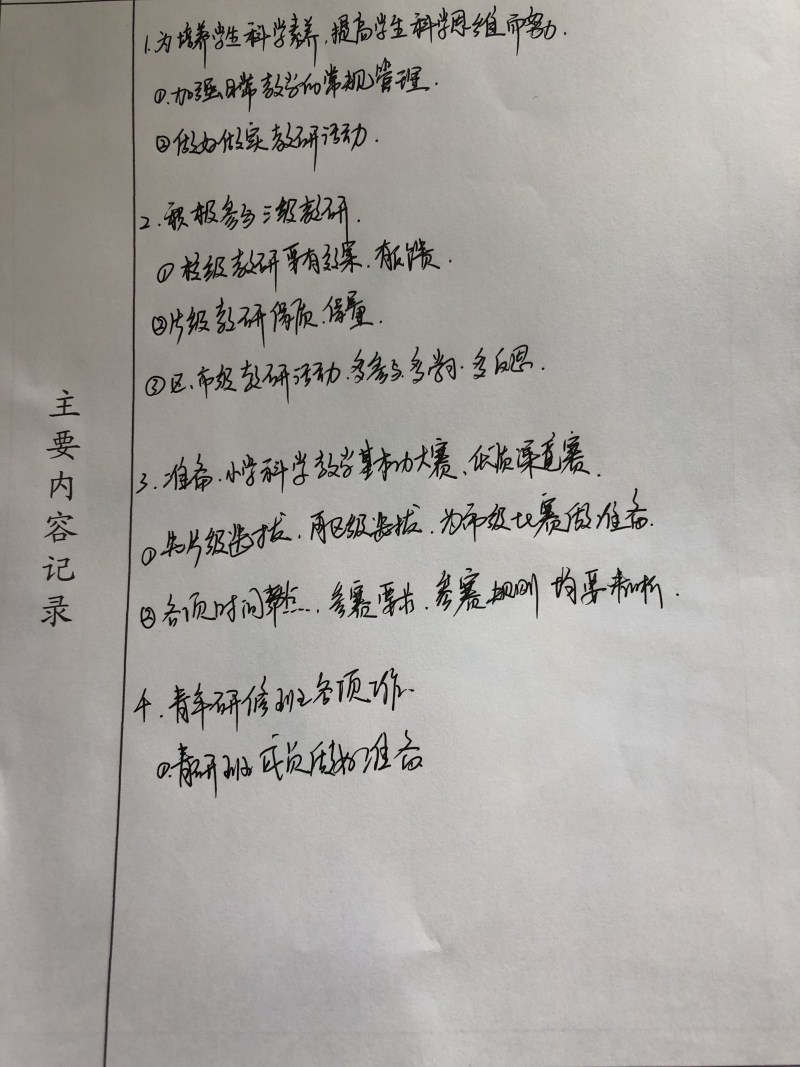 主要内容记录
1.为培养学生科学素养,提高学生科学思维而努力.
①.加强日常教学的常规管理.
②做好做实教研活动.
2.积极参与三级教研.
①校级教研要有效果.有反馈.
②片级教研保质.保量.
③区.市级教研活动.多参与.多学习.多反思.
3.准备.小学科学教学基本功大赛、优质课竞赛.
①先片级选拔,再区级选拔,为市级比赛做准备.
②各项时间节点,参赛要求,参赛规则均要来明晰.
4.青年研修班各项工作.
①.青研班成员做好准备